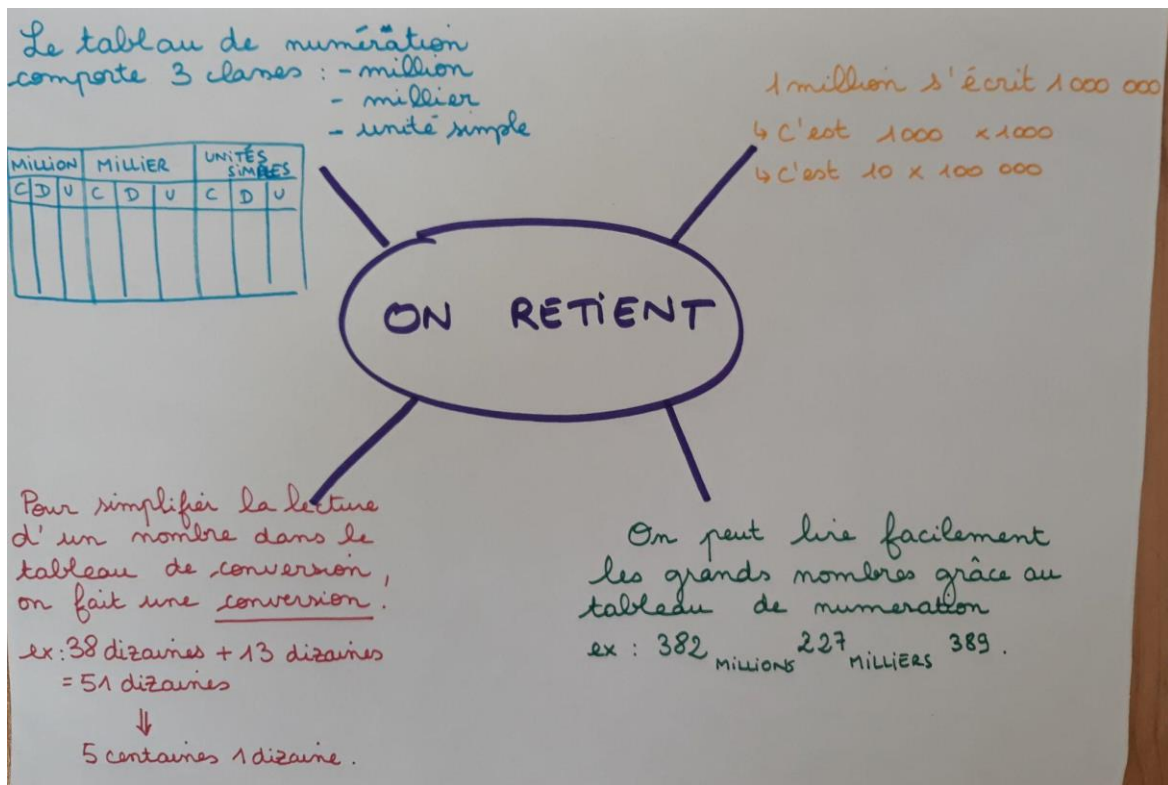 Le tablau de numération
comporte 3 classes : - million
- millier
- unité simple
MILLION MILLIER UNITÉS SIMPLES
C D U C D U C D U
1 million s'écrit 1 000 000
↳ C'est 1000 x 1000
↳ C'est 10 x 100 000
ON RETIENT
Pour simplifier la lecture
d'un nombre dans le
tableau de conversion,
on fait une conversion !
ex : 38 dizaines + 13 dizaines
= 51 dizaines
⇓
5 centaines 1 dizaine.
On peut lire facilement
les grands nombres grâce au
tableau de numeration
ex : 382 MILLIONS 227 MILLIERS 389.